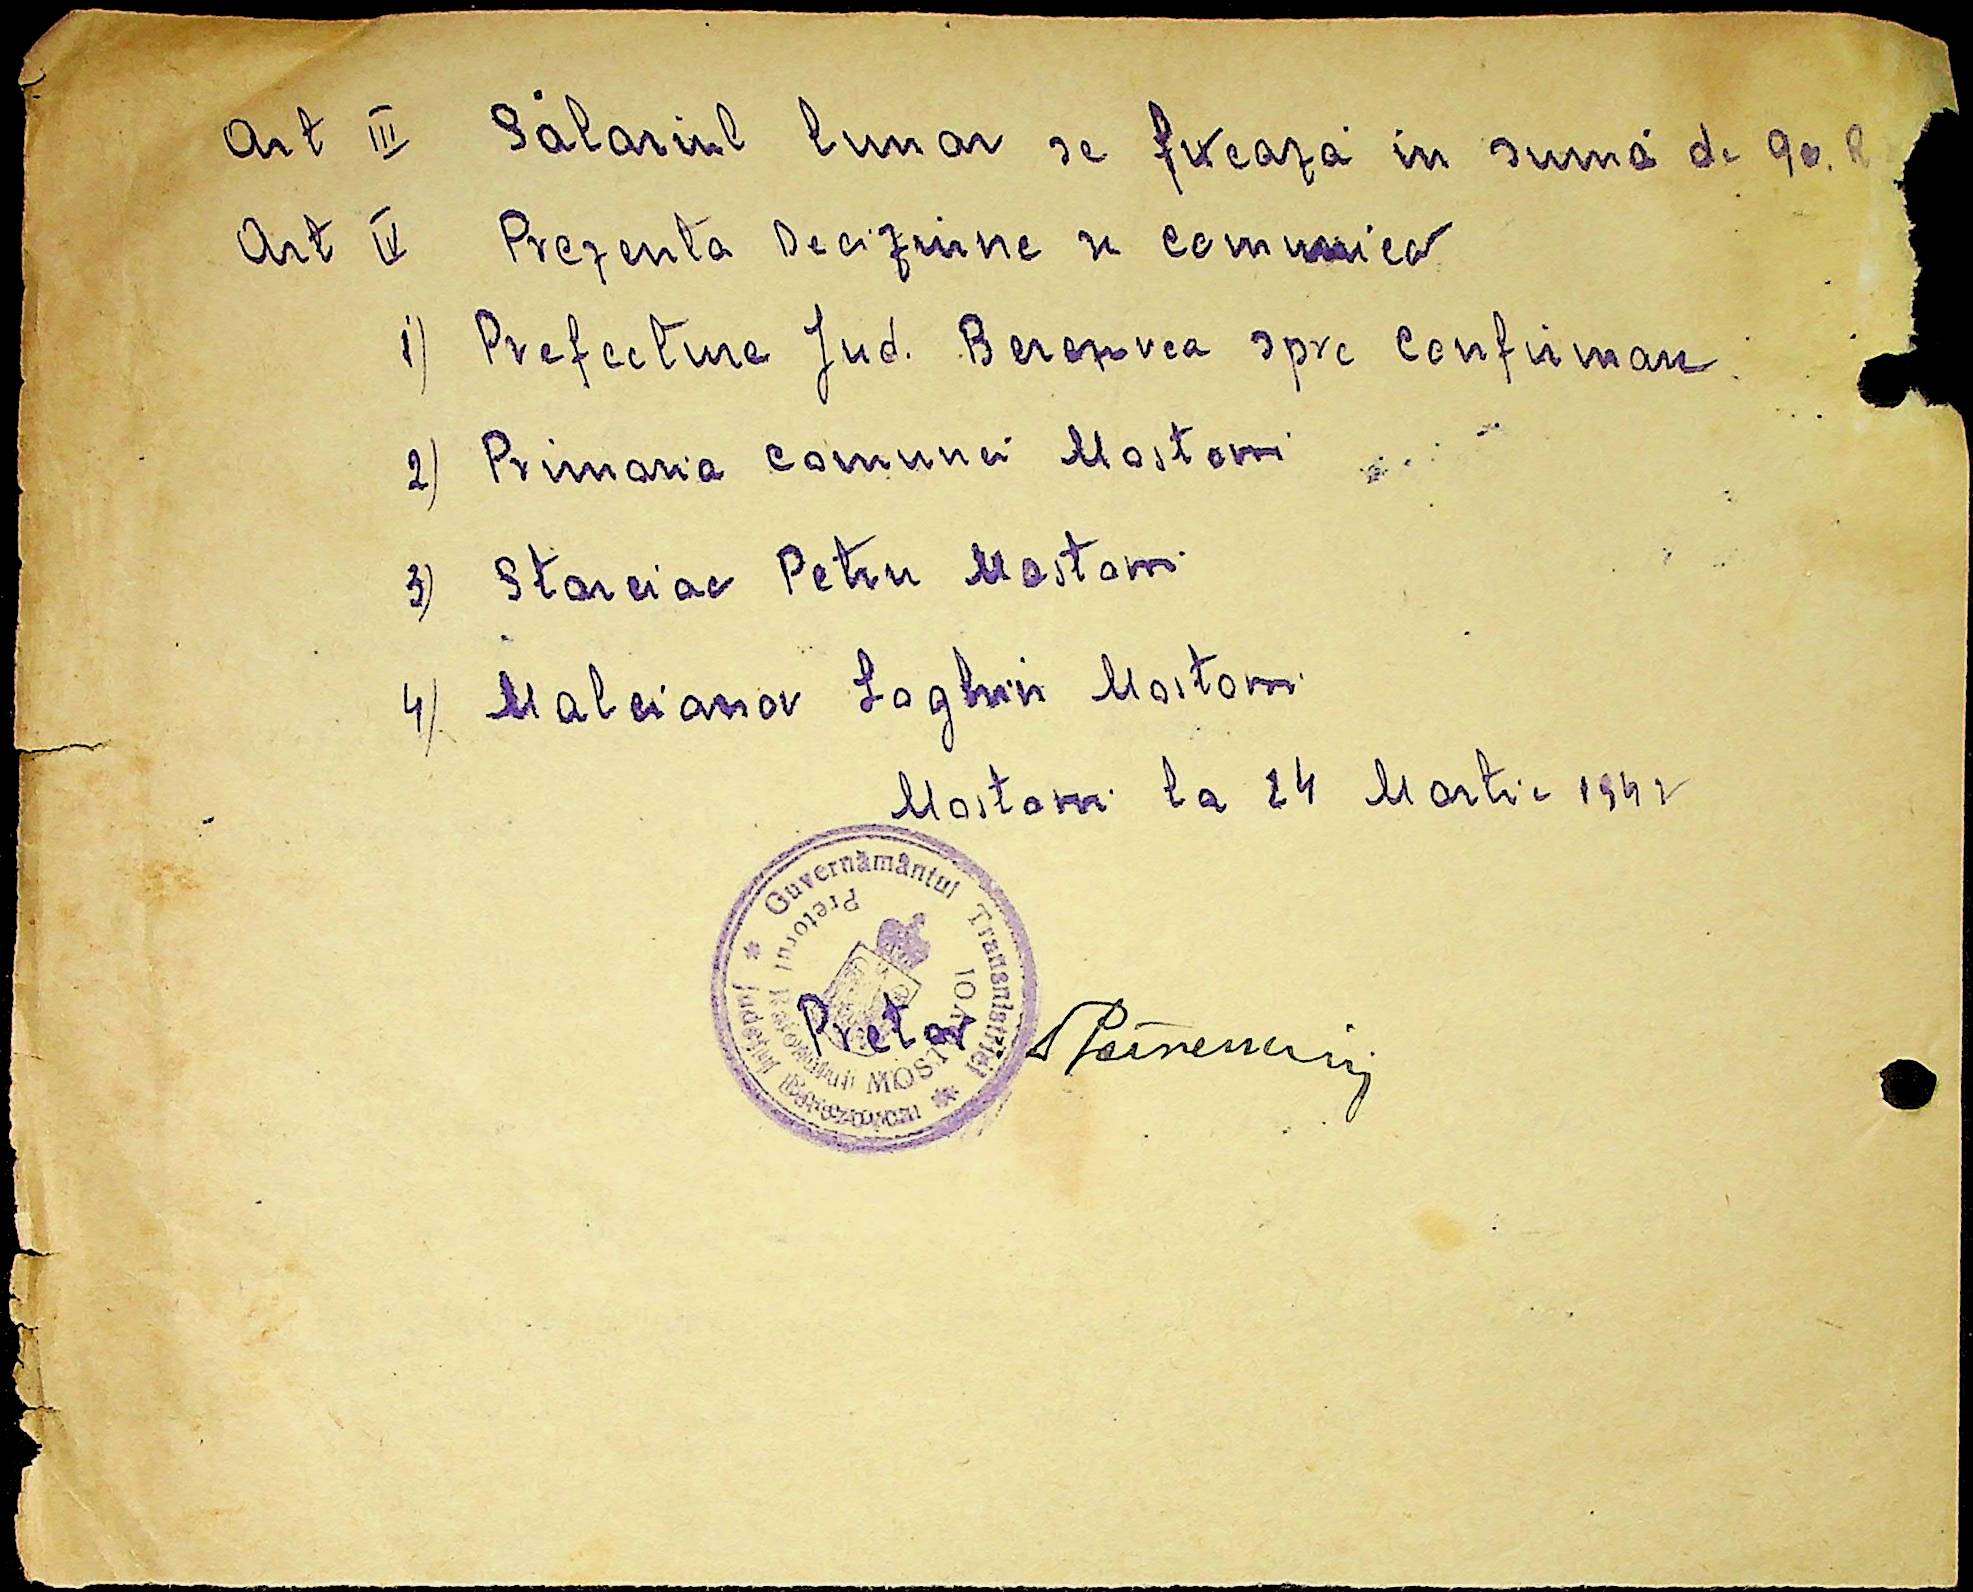 Art III Sálariul lunar se fixează in sumă de 90. R
Art IV Prezenta Deciziune se comunica
1) Prefectura Jud. Berezovca spre confirmare
2) Primaria comunei Mostovoi
3) Starciac Petru Mostovoi
4) Malcianov Loghin Mostovoi
Mostovoi la 24 Martie 1942
Guvernământul Transnistriei
Județul Berezovca
Pretorul Raionului MOSTOVOI
Pretor